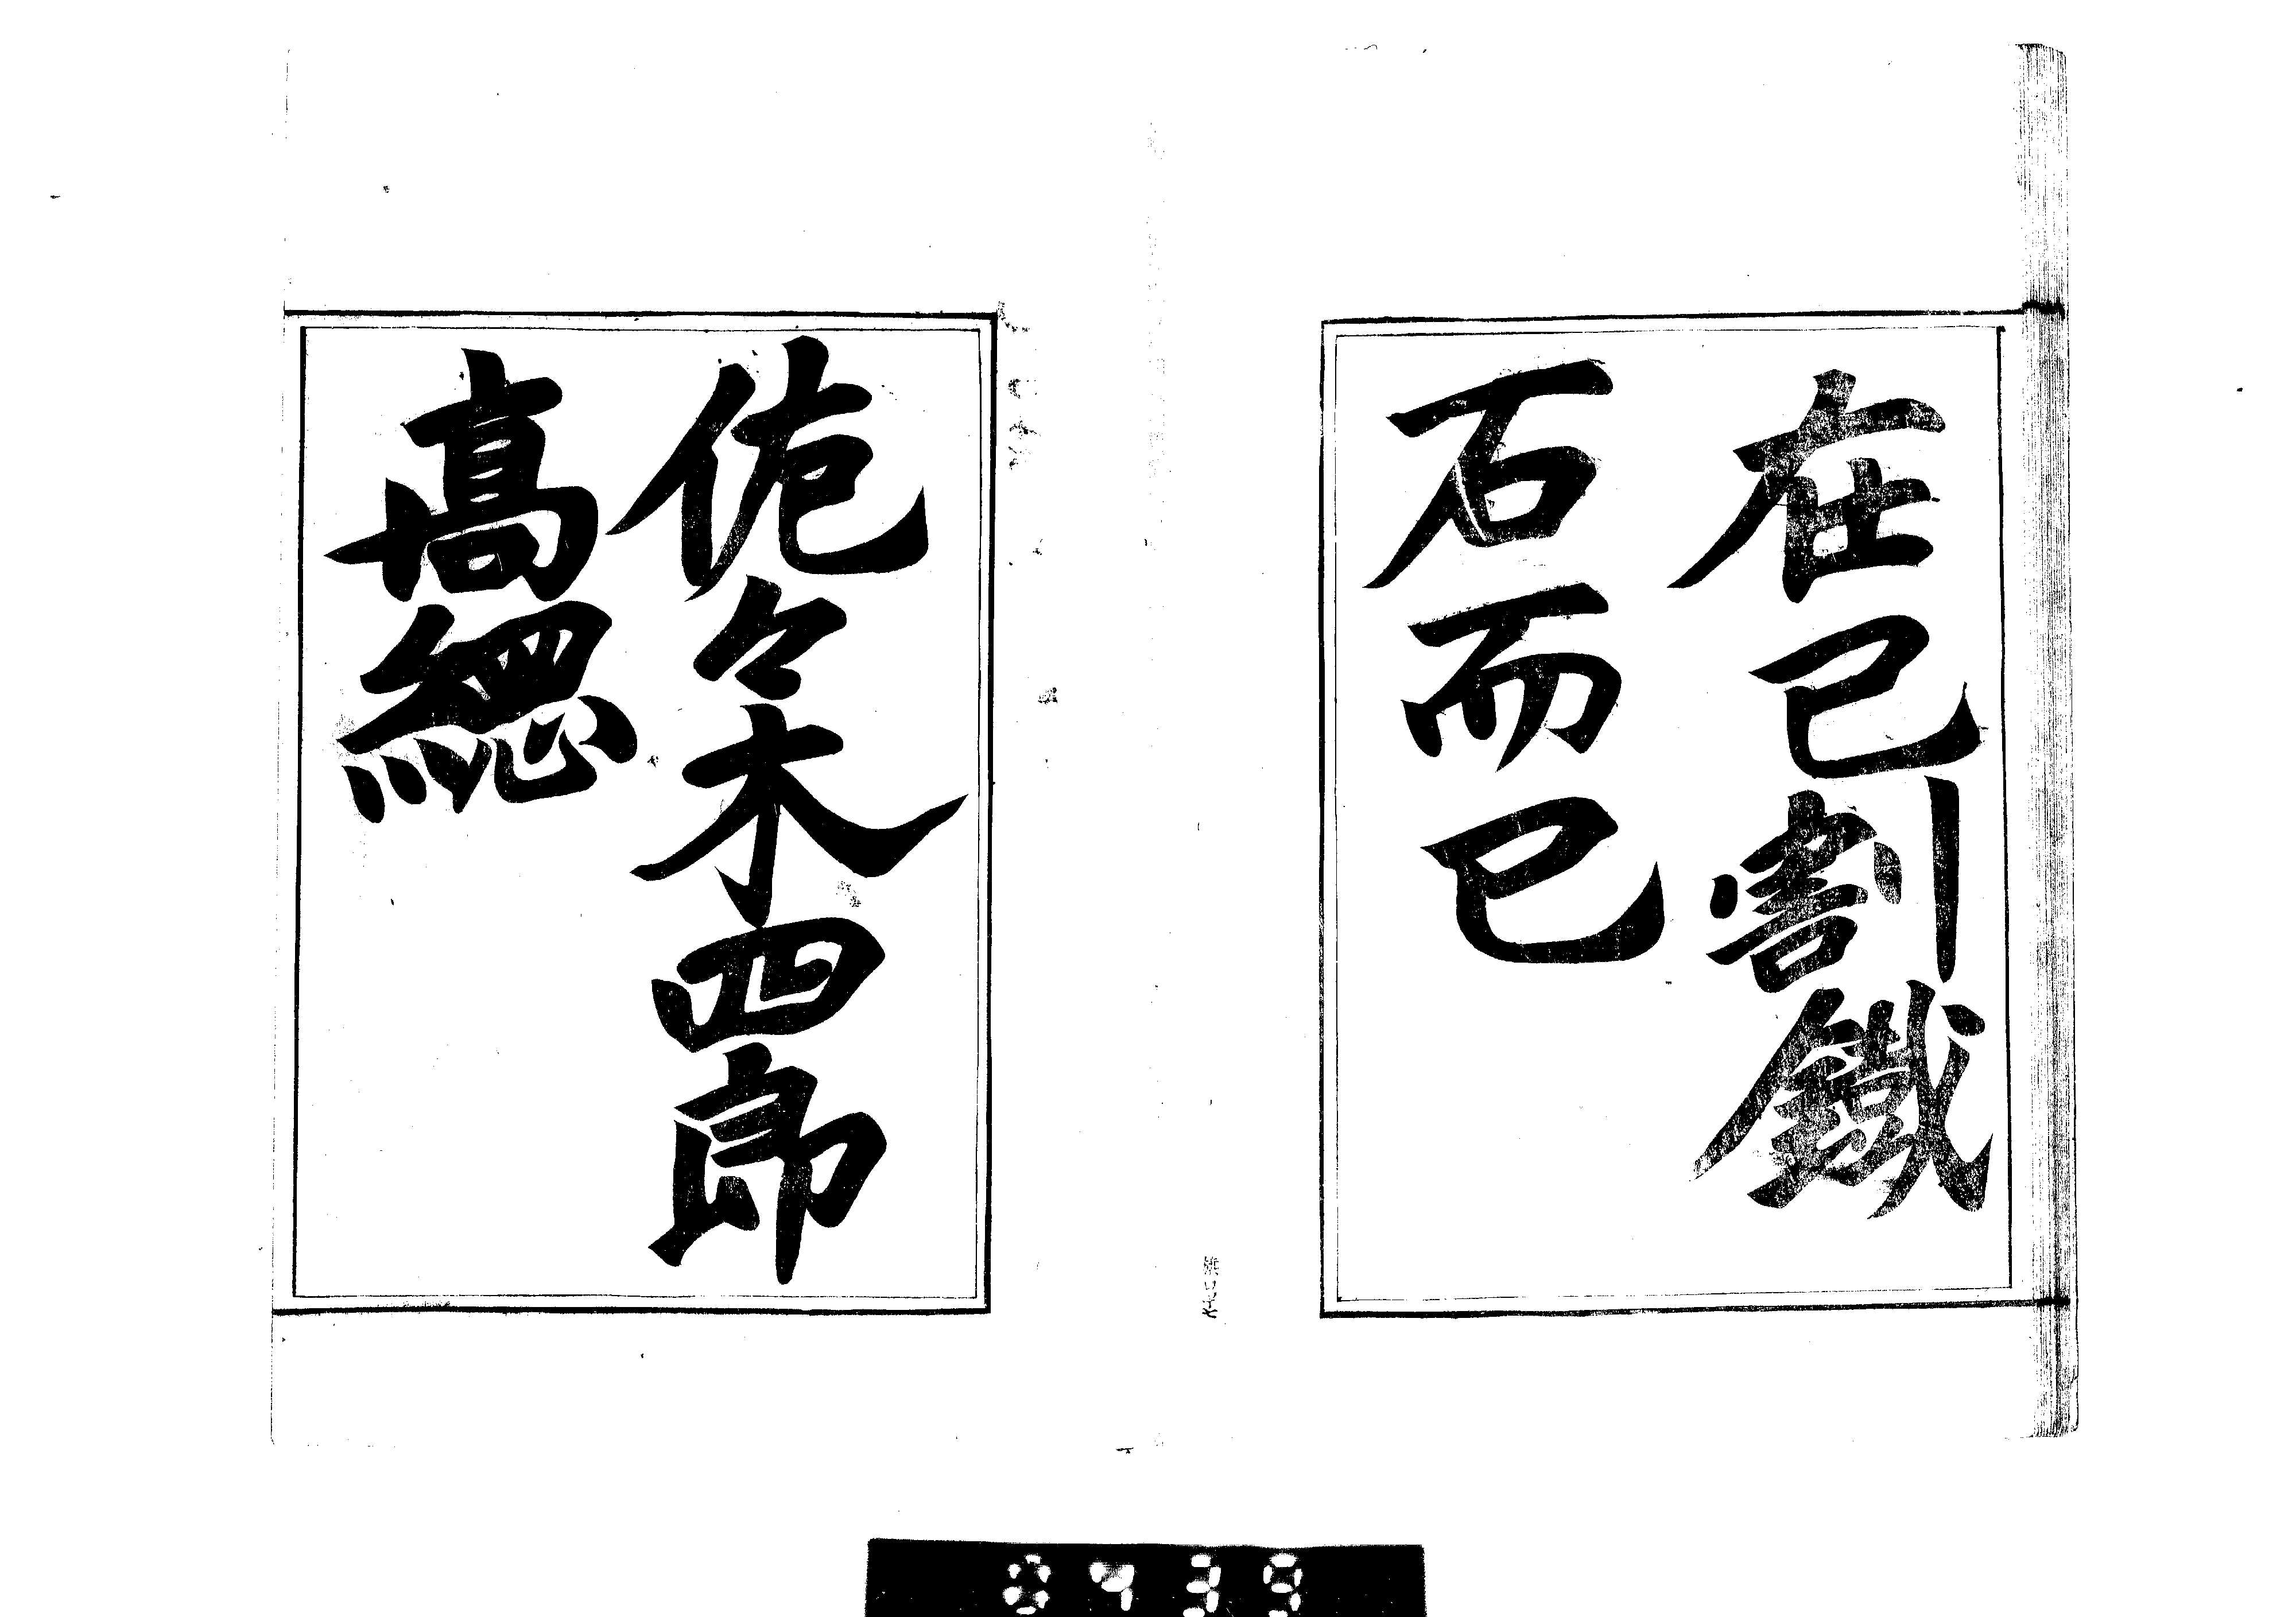 在己割鐵
石而已
佐々木四郎
高綱